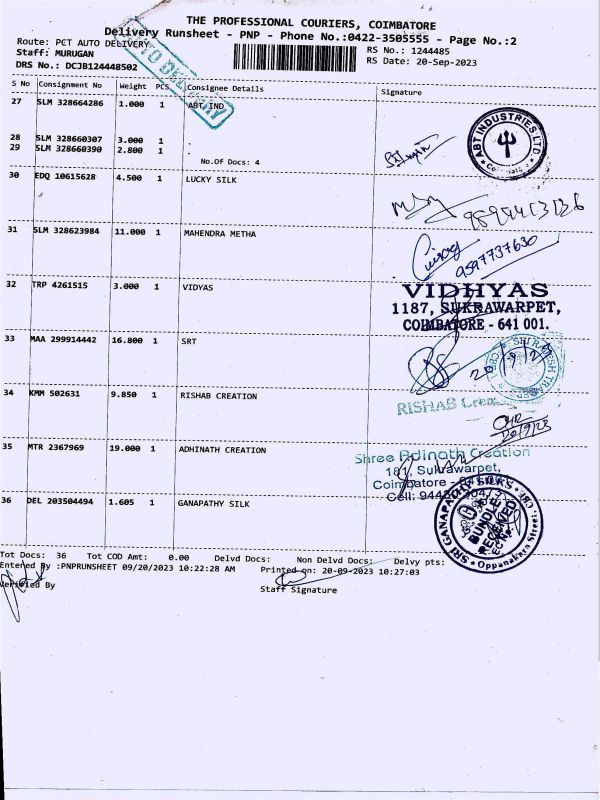 THE PROFESSIONAL COURIERS, COIMBATORE
Delivery Runsheet - PNP - Phone No.:0422-3505555 - Page No.:2
Route: PCT AUTO DELIVERY
RS No.: 1244485
Staff: MURUGAN
RS Date: 20-Sep-2023
DRS No.: DCJB124448502
AUTO DELIVERY
S No Consignment No Weight PCS Consignee Details Signature
27 SLM 328664286 1.000 1 ABT IND
ABT INDUSTRIES LTD
28 SLM 328660307 3.000 1 .
29 SLM 328660390 2.800 1 .
No.Of Docs: 4
30 EDQ 10615628 4.500 1 LUCKY SILK
31 SLM 328623984 11.000 1 MAHENDRA METHA
9597737630
32 TRP 4261515 3.000 1 VIDYAS
VIDHYAS
1187, SUKRAWARPET,
COIMBATORE - 641 001.
33 MAA 299914442 16.800 1 SRT
34 KMM 502631 9.850 1 RISHAB CREATION
RISHAB
35 MTR 2367969 19.000 1 ADHINATH CREATION
Shree Adinath Creation
181, Sukrawarpet,
Coimbatore -
Cell:
36 DEL 203504494 1.605 1 GANAPATHY SILK
SRI GANAPATHY SILKS
BUNDLE
RECEIVED
Oppanakara Street,
Tot Docs: 36 Tot COD Amt: 0.00 Delvd Docs: Non Delvd Docs: Delvy pts:
Entered By :PNPRUNSHEET 09/20/2023 10:22:28 AM Printed on: 20-09-2023 10:27:03
Verified By
Staff Signature